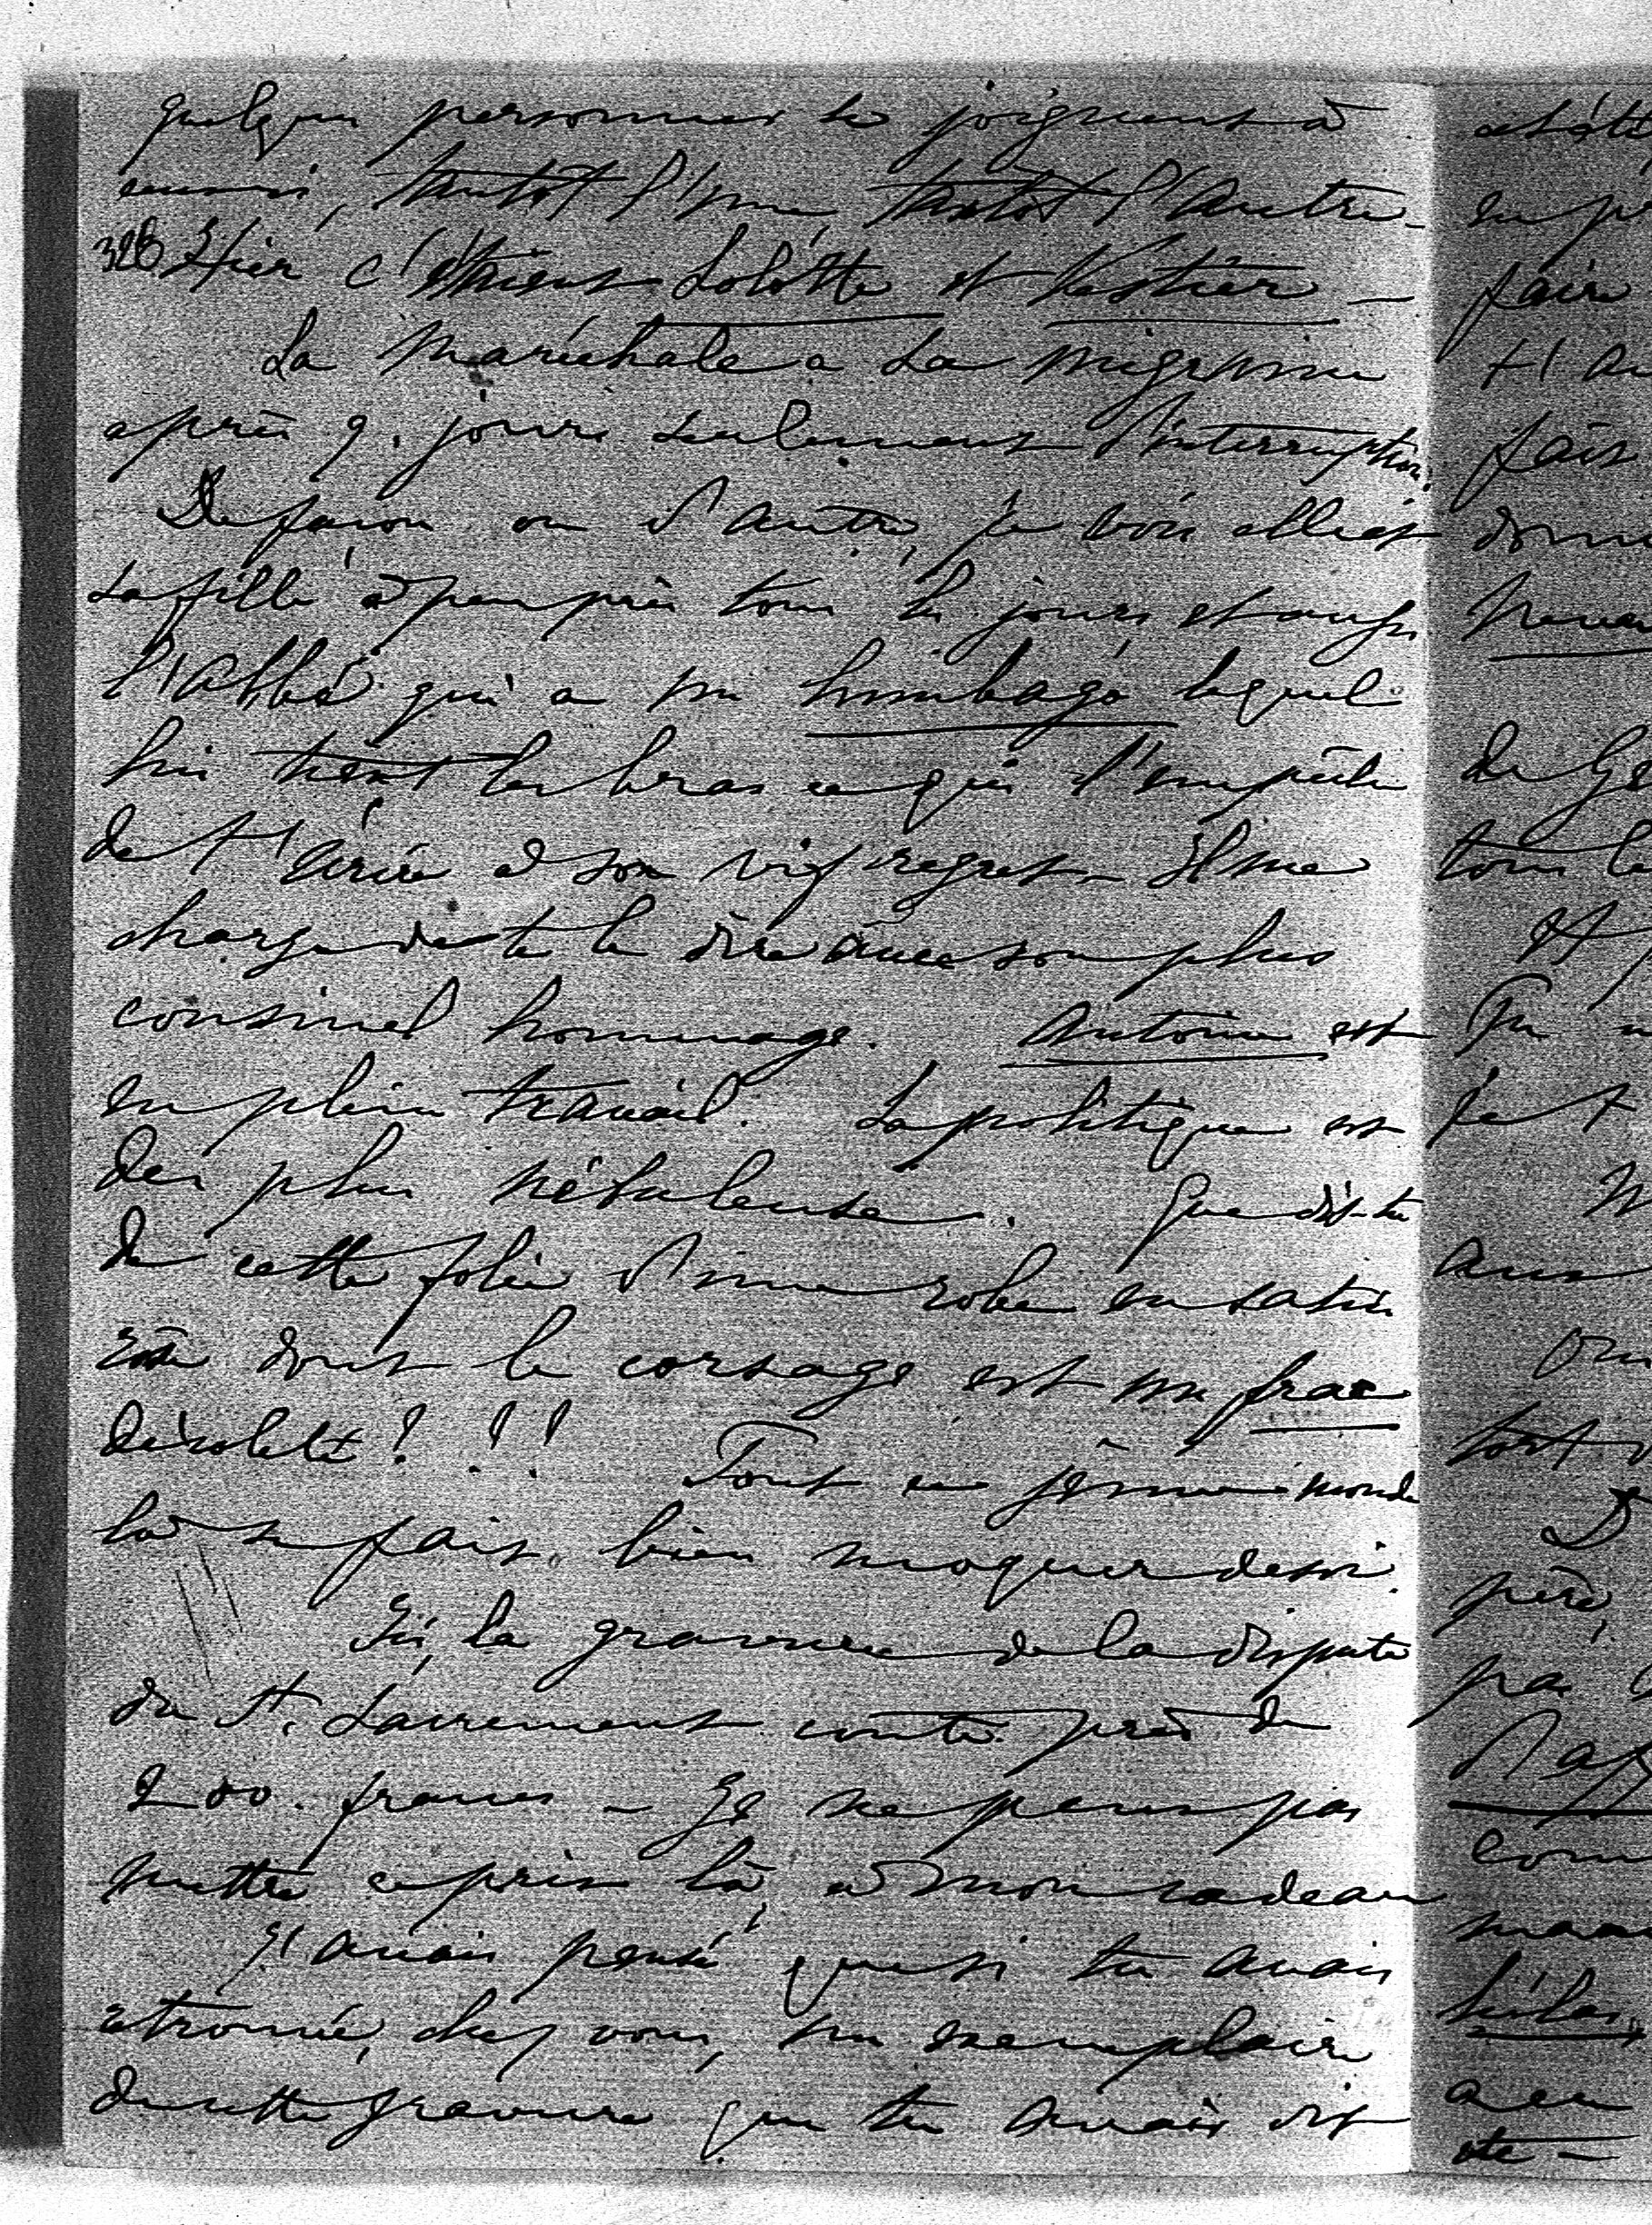 quelques personnes se joignent à
ceux-ci, tantôt l'une, tantôt l'autre_
328 Hier c'étaient Lolotte et Vestier _
La Maréchale a la migraine
après 9. jours seulement d'interruption.
De façon ou d'autre, je vois elle et
sa fille à peu près tous les jours et aussi
l'Abbé qui a un lumbago lequel
lui tient les bras ce qui l'empêche
de t'écrire à son vif regret _ Il me
charge de te le dire avec son plus
continuel hommage. Antoine est
en plein travail. La politique est
des plus nébuleuse. Que dis-tu
de cette folie d'une robe en satin
dont le corsage est un frac
décolleté ! !! Tout ce jeune monde
là se fait bien moquer de soi.
Ici, la gravure de la dispute
du St. Sacrement coute près de
200. francs _ Je ne peux pas
mettre ce prix là, à mon cadeau
J'avais pensé que si tu avais
trouvé, chez vous, un exemplaire
de cette gravure que tu aurais dit
faire
fait
de
tous le
Tu
je t
père,
pas